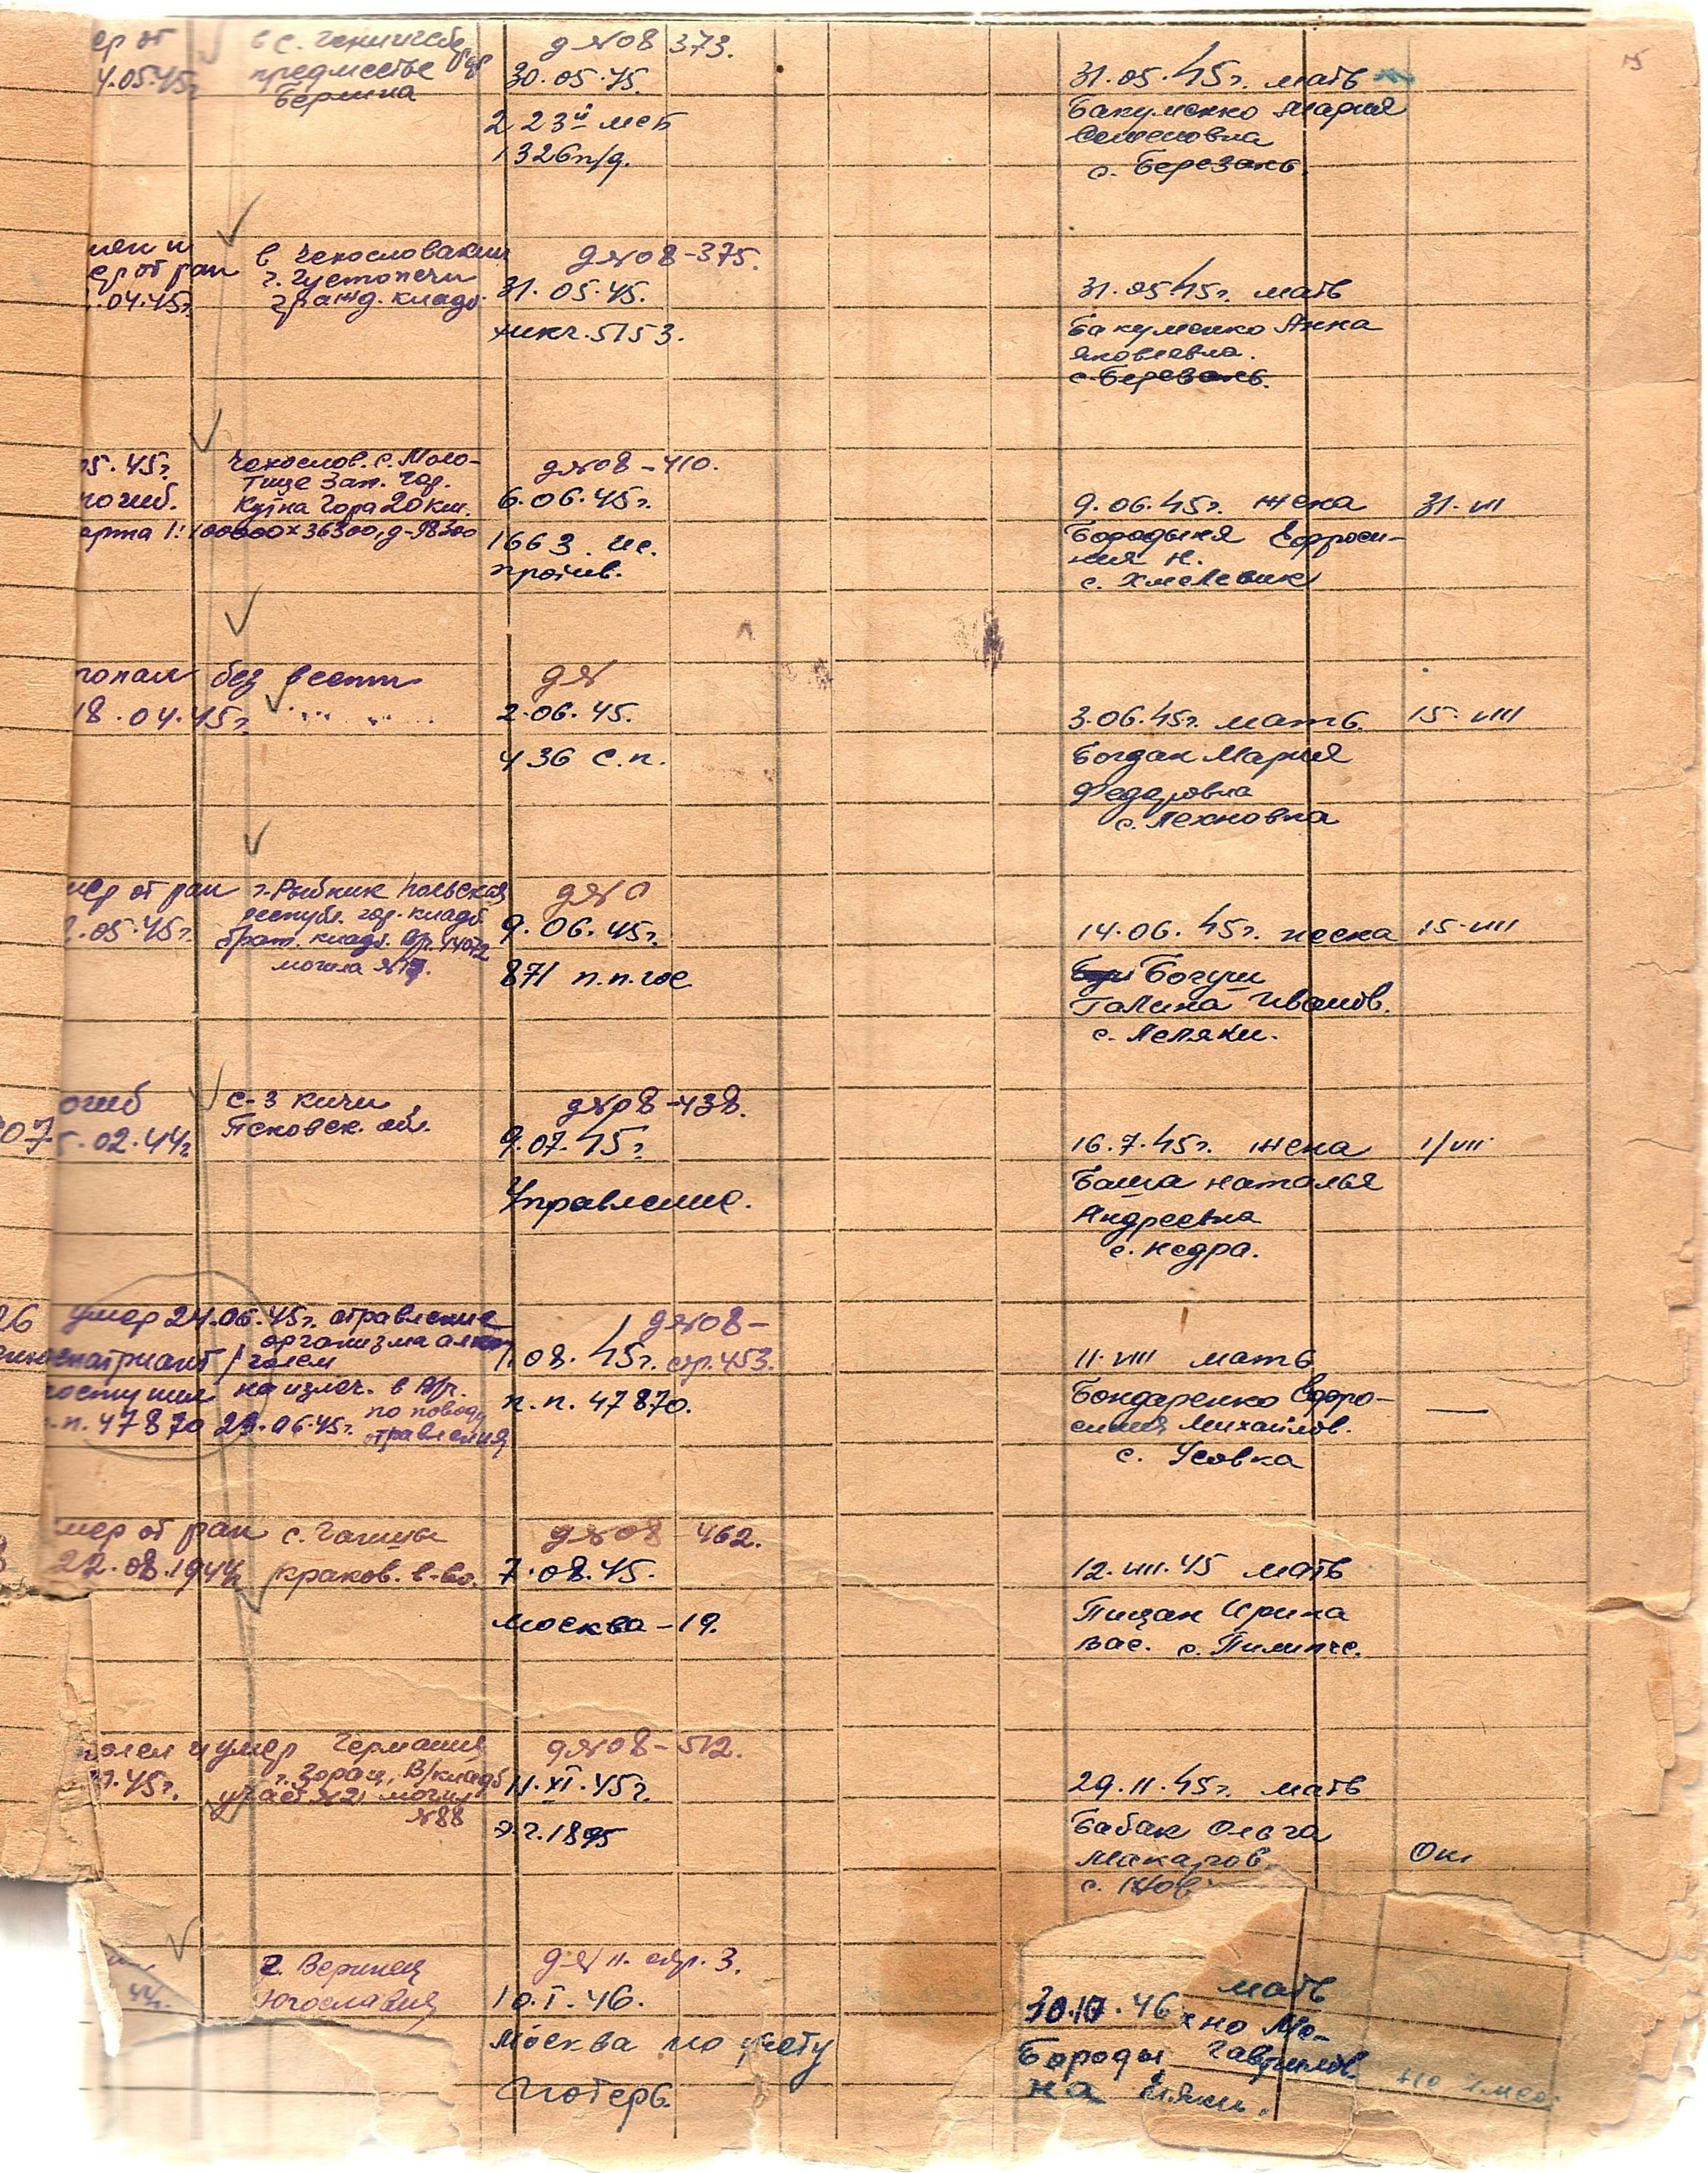 ер от
4.05.45г
в с.
предместье
Берлина
д №08 373.
30.05.45.
223й мсб
1326 п/д.
31.05.45г. мать
Бакуменко Мария
Семеновна
с. Березань.
15
ер от ран
.04.45г.
в Чехословакии
г. Густопечи
гражд. кладб.
д №08-375.
31.05.45.
5153.
31.05.45г. мать
Бакуменко Анна
Яковлевна.
с. Березань.
05.45г.
погиб.
арта 1:100000х36300, д-98300
Чехослов. с. Моло-
тице Зап. Гор.
Кутна Гора 20 км.
д №08-410.
6.06.45г.
1663. ис.
против.
9.06.45г. жена
Бородыня Ефроси-
ния Н.
с. Хмелевик
31.VII
пропал без вести
18.04.45г. " "
д №
2.06.45.
436 с.п.
3.06.45г. мать.
Богдан Мария
Федоровна
с. Лехновка
15.VIII
мер от ран
.05.45г.
г. Рыбник Польская
республ. гор. кладб.
брат. кладб.
могила
д №0
9.06.45г.
871 п.п. гос.
14.06.45г. жена
Богуш
Галина Иванов.
с. Леляки.
15.VIII
огиб
07 5.02.44г
С-З Кичи
Псковск. обл.
д №08-438.
9.07.45г
Управление.
16.7.45г. жена
Баша Наталья
Андреевна
с. Недра.
1/VII
26 умер 24.06.45г. отравление
организма алко
репатриант / голем
поступил на излеч. в
п.п. 47870 24.06.45г. по поводу
отравления
д №08-
11.08.45г. стр. 453.
п.п. 47870.
11.VIII мать
Бондаренко Ефро-
синия Михайлов.
с. Усовка
—
мер от ран
22.08.1944г
с.
краков. в-во.
д №08 462.
7.08.45.
Москва-19.
12.VIII.45 мать
Пицан Ирина
Вас. с. Пилипче.
болел и умер
7.45г.
Германия
г. Зорац, В/кладб
уч-ст №21 могил
№88
д №08-512.
11.XI.45г.
э.г. 1895
29.11.45г. мать
Бабак Ольга
Макаров.
с. Нов
Ок.
44г.
г. Вершец
Югославия
д № н. стр. 3.
10.I.46.
Москва по учету
потерь
мать
46 хно Ме-
Бороды Гаврилов.
на ляки.